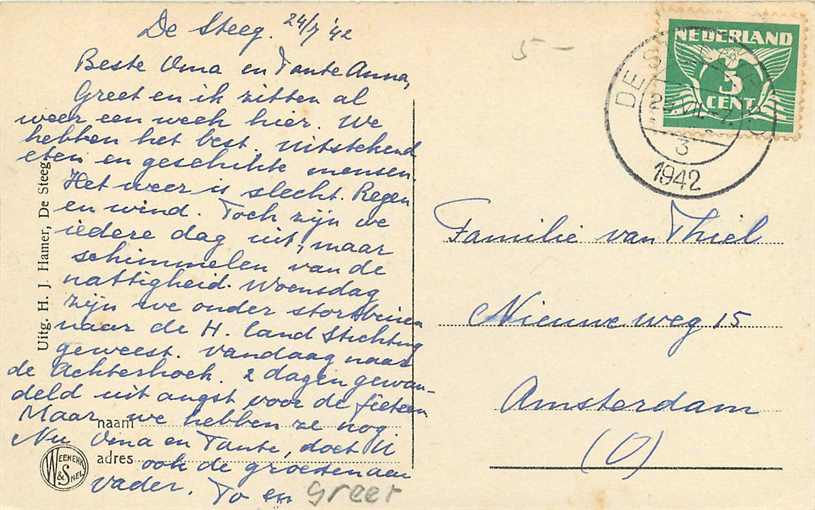 De Steeg. 24/7 '42
Beste Oma en Tante Anna,
Greet en ik zitten al
weer een week hier. We
hebben het best. Uitstekend
eten en geschikte mensen.
Het weer is slecht. Regen
en wind. Toch zijn we
iedere dag uit, maar
schimmelen van de
nattigheid. Woensdag
zijn we onder stortbuien
naar de H. land Stichting
geweest. Vandaag naar
de Achterhoek. 2 dagen gewan-
deld uit angst voor de fietsen
Maar we hebben ze nog
Nu Oma en Tante, doet U
ook de groeten aan
vader. To en Greet
naam
adres
Uitg. H. J. Hamer, De Steeg
WEENENK
& SNEL
5 —
NEDERLAND
5
CENT
DE STEEG
3
1942
Familie van Thiel
Nieuwe weg 15
Amsterdam
(O)